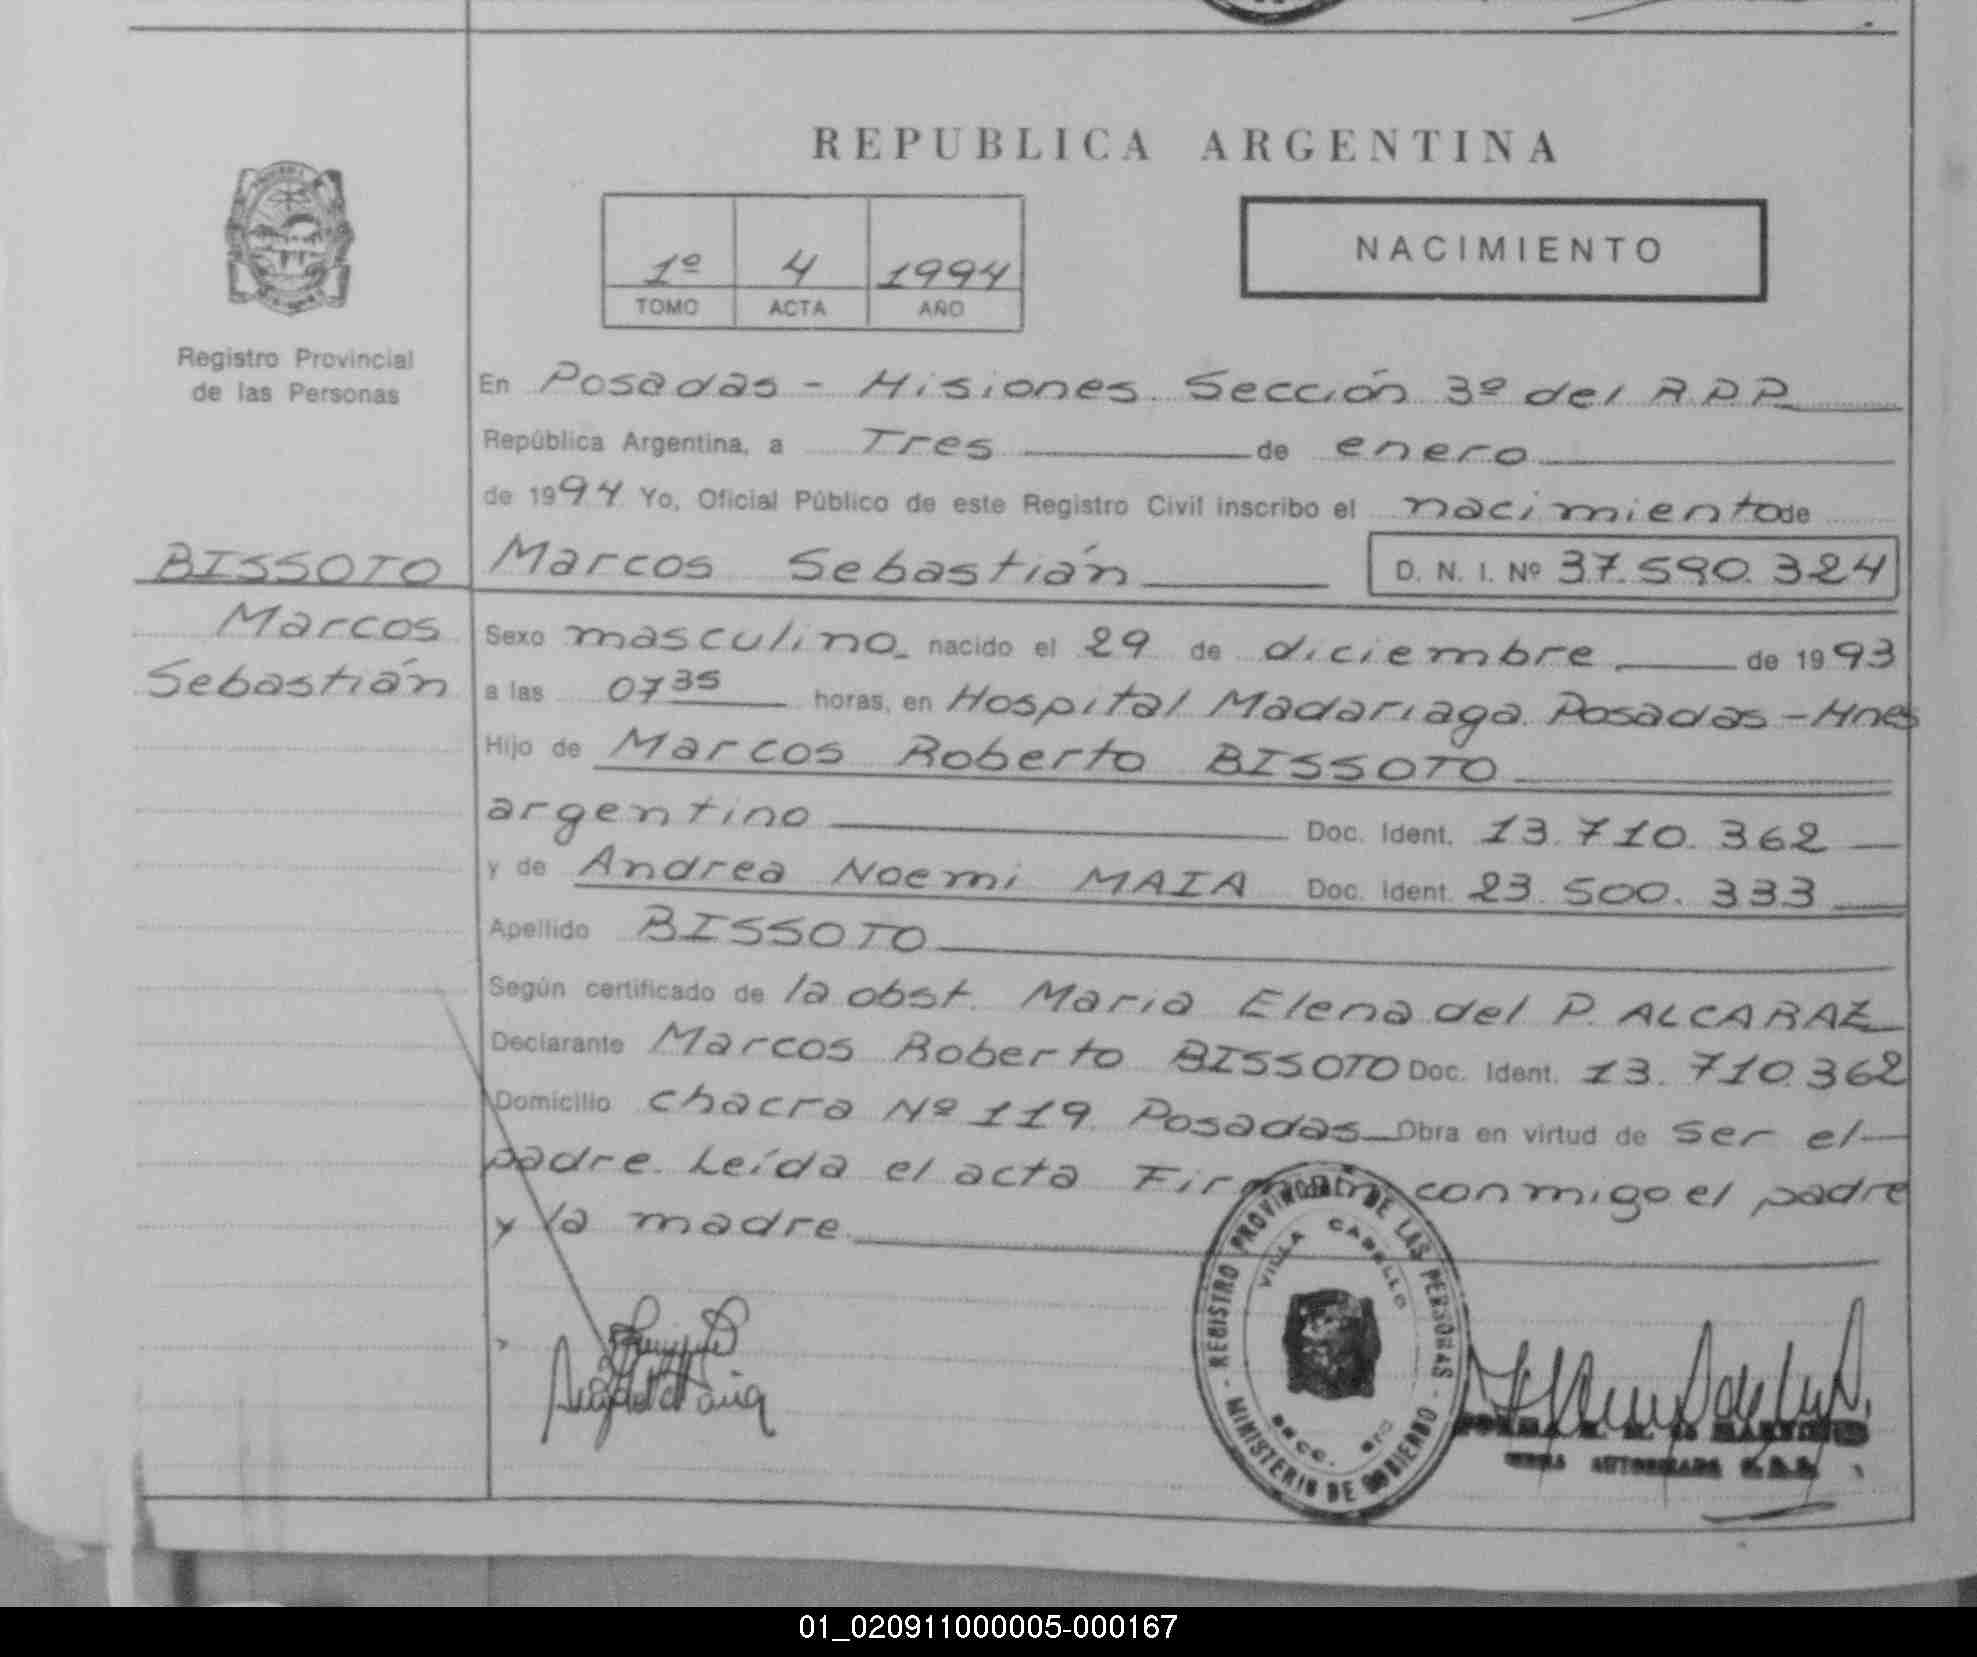 REPUBLICA ARGENTINA
1º 4 1994
TOMO ACTA AÑO
NACIMIENTO
Registro Provincial
de las Personas
En Posadas - Misiones. Sección 3º del R.P.P.
República Argentina, a Tres de enero
de 1994 Yo, Oficial Público de este Registro Civil inscribo el nacimiento de
BISSOTO
Marcos
Sebastián
Marcos Sebastián D. N. I. Nº 37.590.324
Sexo masculino. nacido el 29 de diciembre de 1993
a las 07 35 horas, en Hospital Madariaga. Posadas - Mnes
Hijo de Marcos Roberto BISSOTO
argentino Doc. Ident. 13.710.362
y de Andrea Noemi MAIA Doc. Ident. 23.500.333
Apellido BISSOTO
Según certificado de la obst. Maria Elena del P. ALCARAZ
Declarante Marcos Roberto BISSOTO Doc. Ident. 13.710.362
Domicilio chacra Nº 119. Posadas Obra en virtud de ser el
padre. Leída el acta Firman conmigo el padre
y la madre.
REGISTRO PROVINCIAL DE LAS PERSONAS
VILLA CABELLO
SECC. 3ro
- MINISTERIO DE GOBIERNO -
AUTORIZADA
01_020911000005-000167